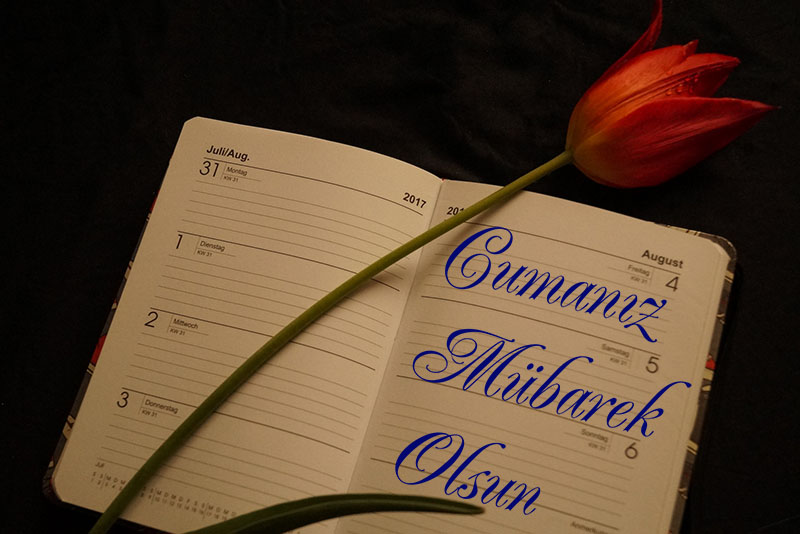 Juli/Aug.
31 Montag
KW 31
2017
1 Dienstag
KW 31
2 Mittwoch
KW 31
3 Donnerstag
KW 31
Juli
August
Freitag 4
KW 31
Samstag 5
KW 31
Sonntag 6
KW 31
Cumanız
Mübarek
Olsun